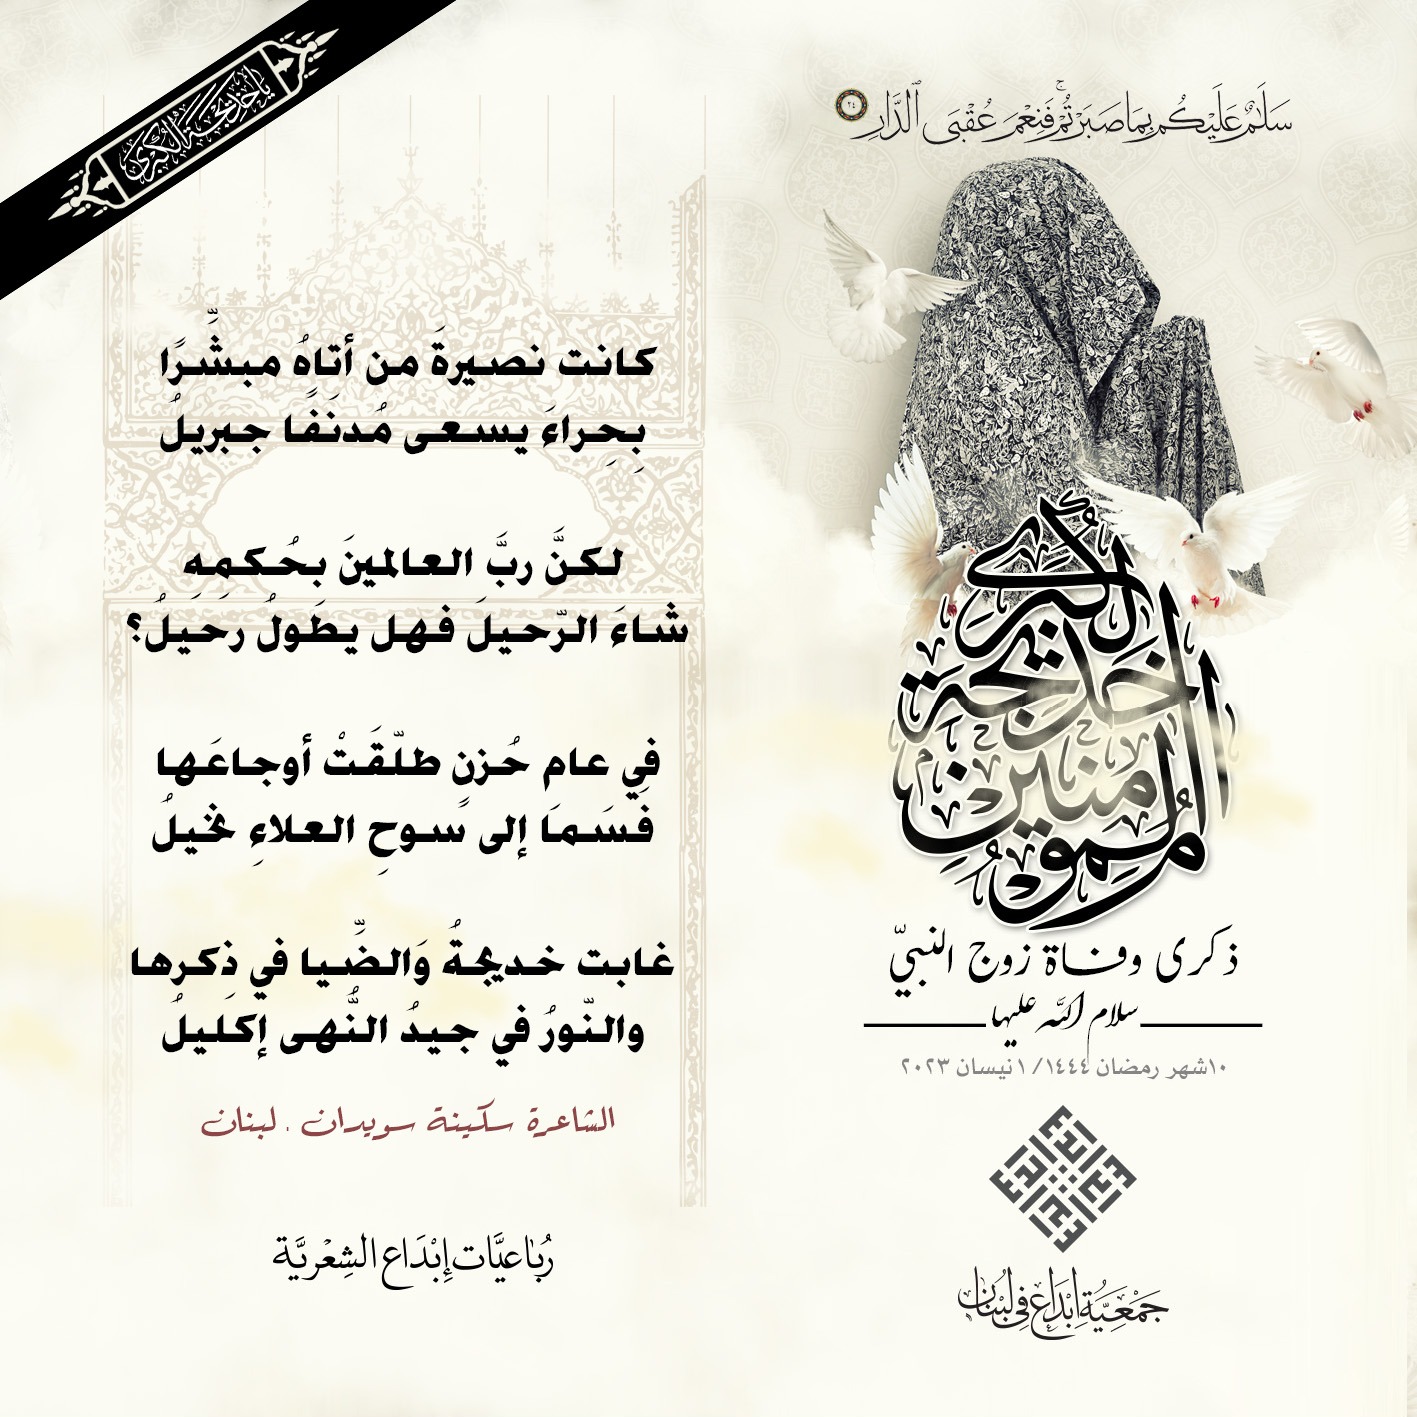 سَلَٰمٌ عَلَيْكُم بِمَا صَبَرْتُمْ ۚ فَنِعْمَ عُقْبَى ٱلدَّارِ ٢٤
يا خديجة الكبرى
كانت نصيرةَ من أتاهُ مبشِّرًا
بِحِراءَ يسعى مُدنَفًا جبريلُ
لكنَّ ربَّ العالمينَ بحُكمِهِ
شاءَ الرّحيلَ فهل يطَولُ رحيلُ؟
فِي عام حُزنٍ طلّقَتْ أوجاعَها
فسَمَا إلى سوحِ العلاءِ نخيلُ
غابت خديجةُ وَالضِّيا في ذِكرِها
والنّورُ في جيدُ النُّهى إكليلُ
الشاعرة سكينة سويدان . لبنان
رُبَاعيَّات إِبْدَاع الشِعْريَّة
أم المؤمنين خديجة الكبرى
ذكرى وفاة زوج النبيّ
سلام الله عليها
١٠شهر رمضان ١٤٤٤/ ١ نيسان ٢٠٢٣
إبداع
جَمْعِيَّة إِبْدَاع في لُبْنَان